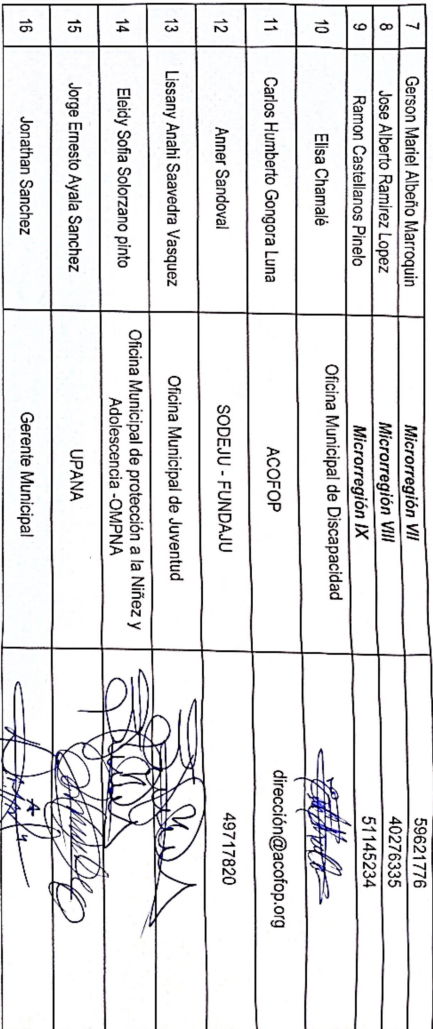 7 Gerson Mariel Albeño Marroquin Microrregión VII 59621776
8 Jose Alberto Ramirez Lopez Microrregión VIII 40276335
9 Ramon Castellanos Pinelo Microrregión IX 51145234
10 Elisa Chamalé Oficina Municipal de Discapacidad
11 Carlos Humberto Gongora Luna ACOFOP dirección@acofop.org
12 Anner Sandoval SODEJU - FUNDAJU 49717820
13 Lissany Anahi Saavedra Vasquez Oficina Municipal de Juventud
14 Eleidy Sofia Solorzano pinto Oficina Municipal de protección a la Niñez y
Adolescencia -OMPNA
15 Jorge Ernesto Ayala Sanchez UPANA
16 Jonathan Sanchez Gerente Municipal